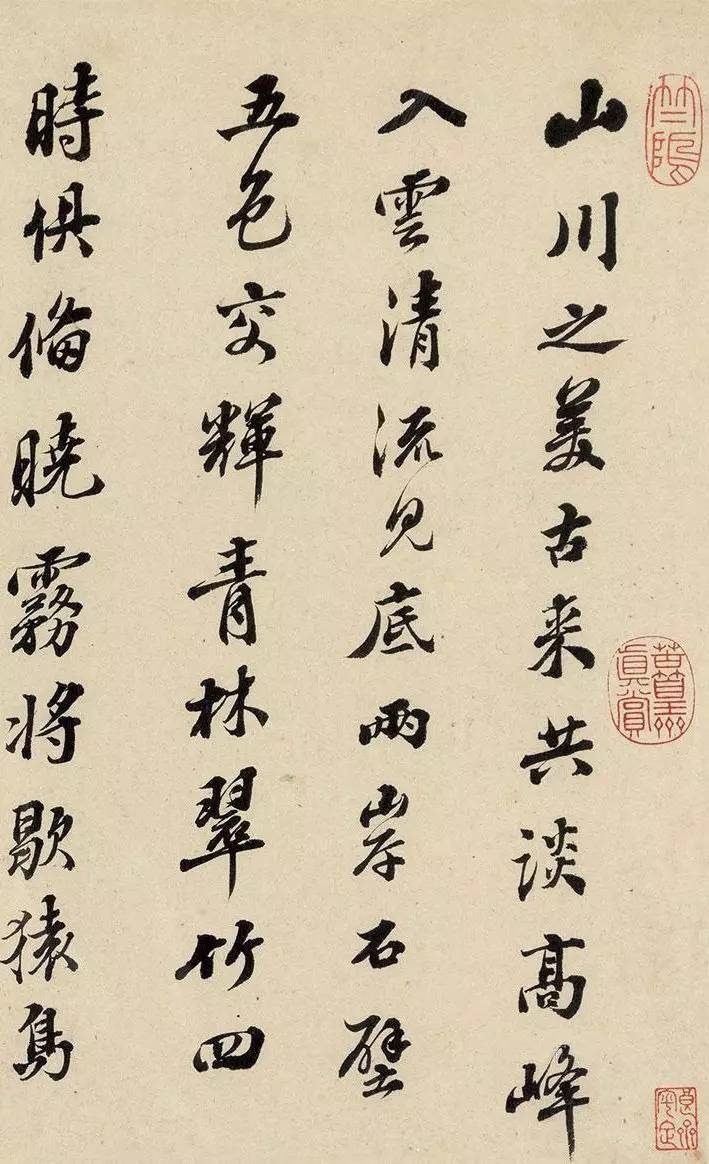 山川之美古来共谈高峰
入雲清流見底兩岸石壁
五色交輝青林翠竹四
時俱備曉霧将歇猿鳥